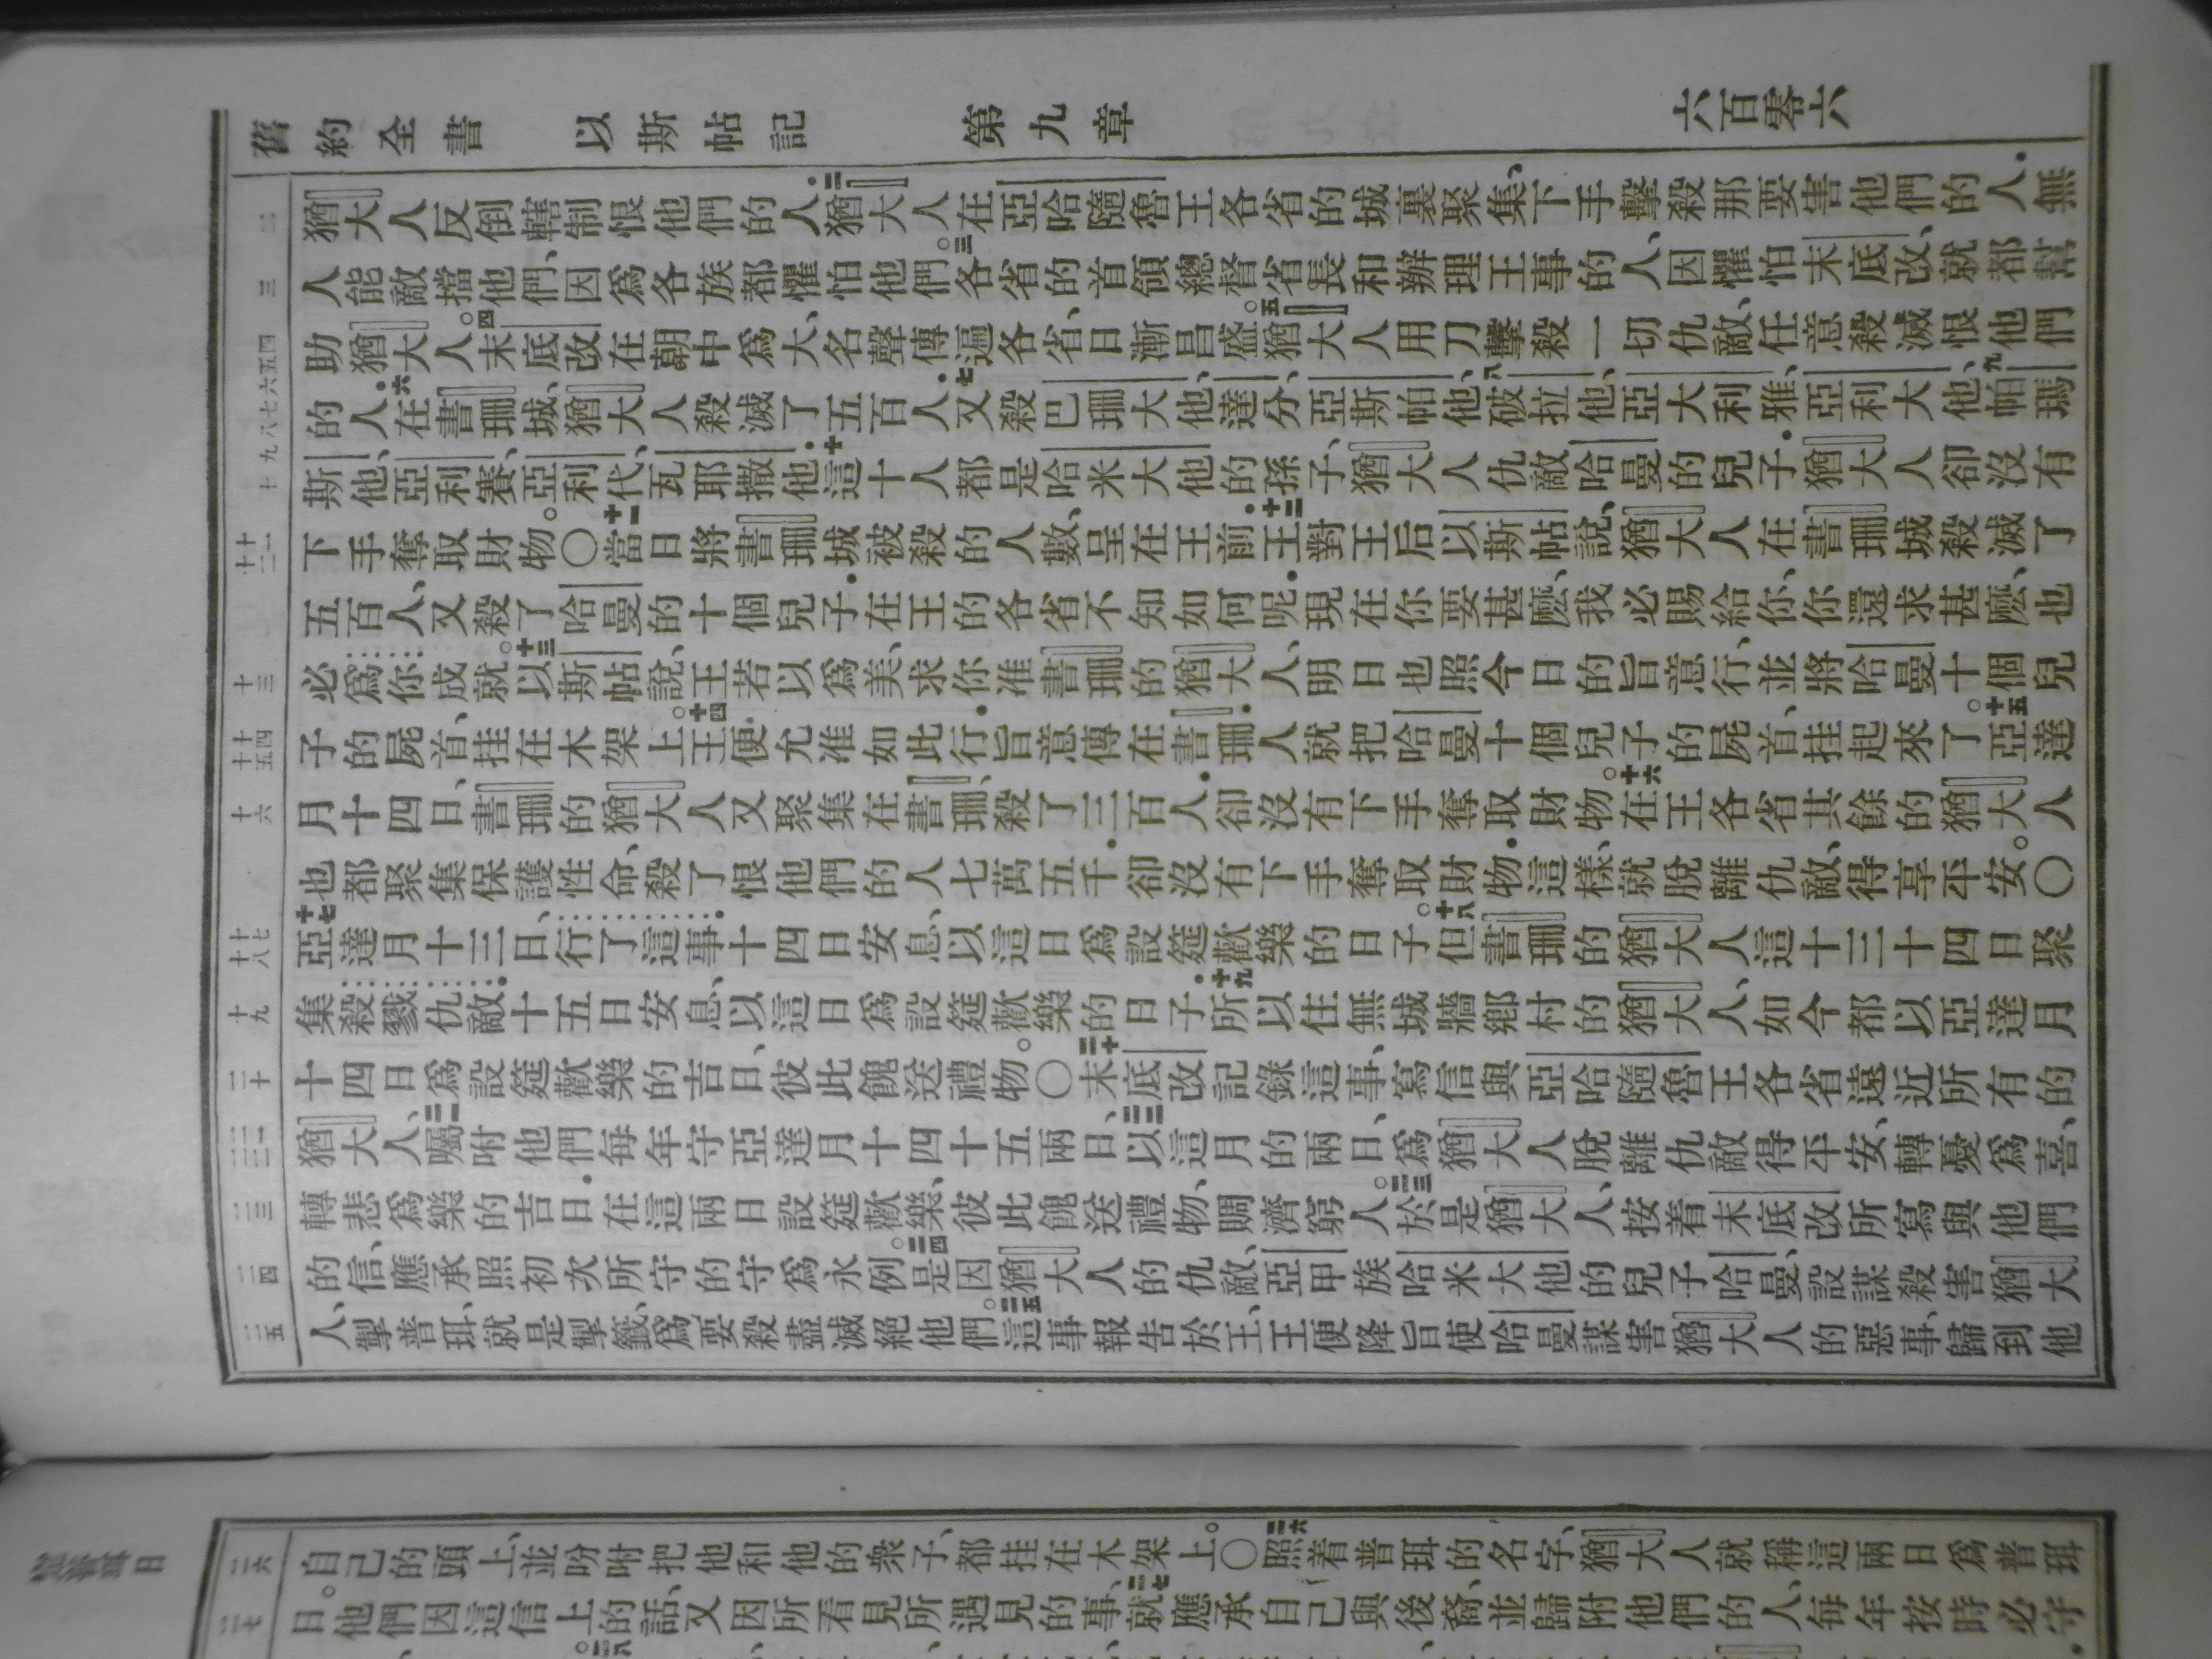 舊約全書 以斯帖記 第九章 六百零六
二 猶大人反倒轄制恨他們的人．二猶大人在亞哈隨魯王各省的城裏聚集、下手擊殺那要害他們的人．無
三 人能敵擋他們、因爲各族都懼怕他們。三各省的首領總督省長和辦理王事的人、因懼怕末底改、就都幫
四五六七八九 助猶大人。四末底改在朝中爲大、名聲傳遍各省、日漸昌盛。五猶大人用刀擊殺一切仇敵、任意殺滅恨他們
的人．六在書珊城、猶大人殺滅了五百人．七又殺巴珊大他、達分、亞斯帕他、八破拉他、亞大利雅、亞利大他、九帕瑪
十 斯他、亞利賽、亞利代、瓦耶撒他．十這十人都是哈米大他的孫子、猶大人仇敵哈曼的兒子．猶大人卻沒有
十一 十二 下手奪取財物。〇十一當日將書珊城被殺的人數、呈在王前．十二王對王后以斯帖說、猶大人在書珊城殺滅了
五百人、又殺了哈曼的十個兒子．在王的各省不知如何呢．現在你要甚麼、我必賜給你、你還求甚麼、也
十三 必爲你成就。十三以斯帖說、王若以爲美、求你准書珊的猶大人、明日也照今日的旨意行、並將哈曼十個兒
十四 十五 子的屍首、挂在木架上。十四王便允准如此行．旨意傳在書珊．人就把哈曼十個兒子的屍首、挂起來了。十五亞達
十六 月十四日、書珊的猶大人又聚集在書珊、殺了三百人．卻沒有下手奪取財物。十六在王各省其餘的猶大人
也都聚集保護性命、殺了恨他們的人七萬五千．卻沒有下手奪取財物．這樣、就脫離仇敵、得享平安。〇
十七 十八 十七亞達月十三日、行了這事．十四日安息、以這日爲設筵歡樂的日子。十八但書珊的猶大人這十三十四日聚
十九 集殺戮仇敵．十五日安息、以這日爲設筵歡樂的日子．十九所以住無城牆鄉村的猶大人、如今都以亞達月
二十 十四日爲設筵歡樂的吉日、彼此餽送禮物。〇二十末底改記錄這事、寫信與亞哈隨魯王各省遠近所有的
二一 二二 猶大人、二一囑咐他們每年守亞達月十四十五兩日、二二以這月的兩日、爲猶大人脫離仇敵得平安、轉憂爲喜、
二三 轉悲爲樂的吉日．在這兩日設筵歡樂、彼此餽送禮物、賙濟窮人。二三於是猶大人、按着末底改所寫與他們
二四 的信、應承照初次所守的守爲永例。二四是因猶大人的仇敵、亞甲族哈米大他的兒子哈曼、設謀殺害猶大
二五 人、掣普珥、就是掣籤、爲要殺盡滅絕他們。二五這事報告於王、王便降旨使哈曼謀害猶大人的惡事、歸到他
二六 自己的頭上、並吩咐把他和他的衆子、都挂在木架上。〇二六照着普珥的名字、猶大人就稱這兩日爲普珥
二七 日。他們因這信上的話、又因所看見所遇見的事、二七就應承自己與後裔、並歸附他們的人、每年按時必守